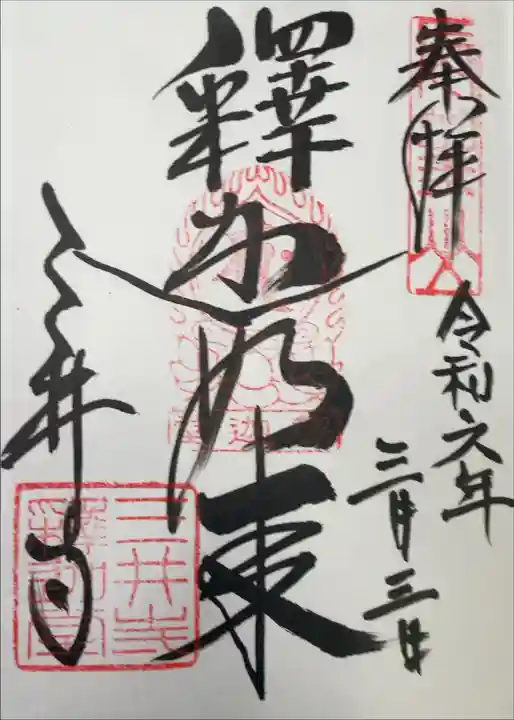 奉拝
令和六年
三月三日
釋迦如来
三井寺
三井寺
釋迦堂